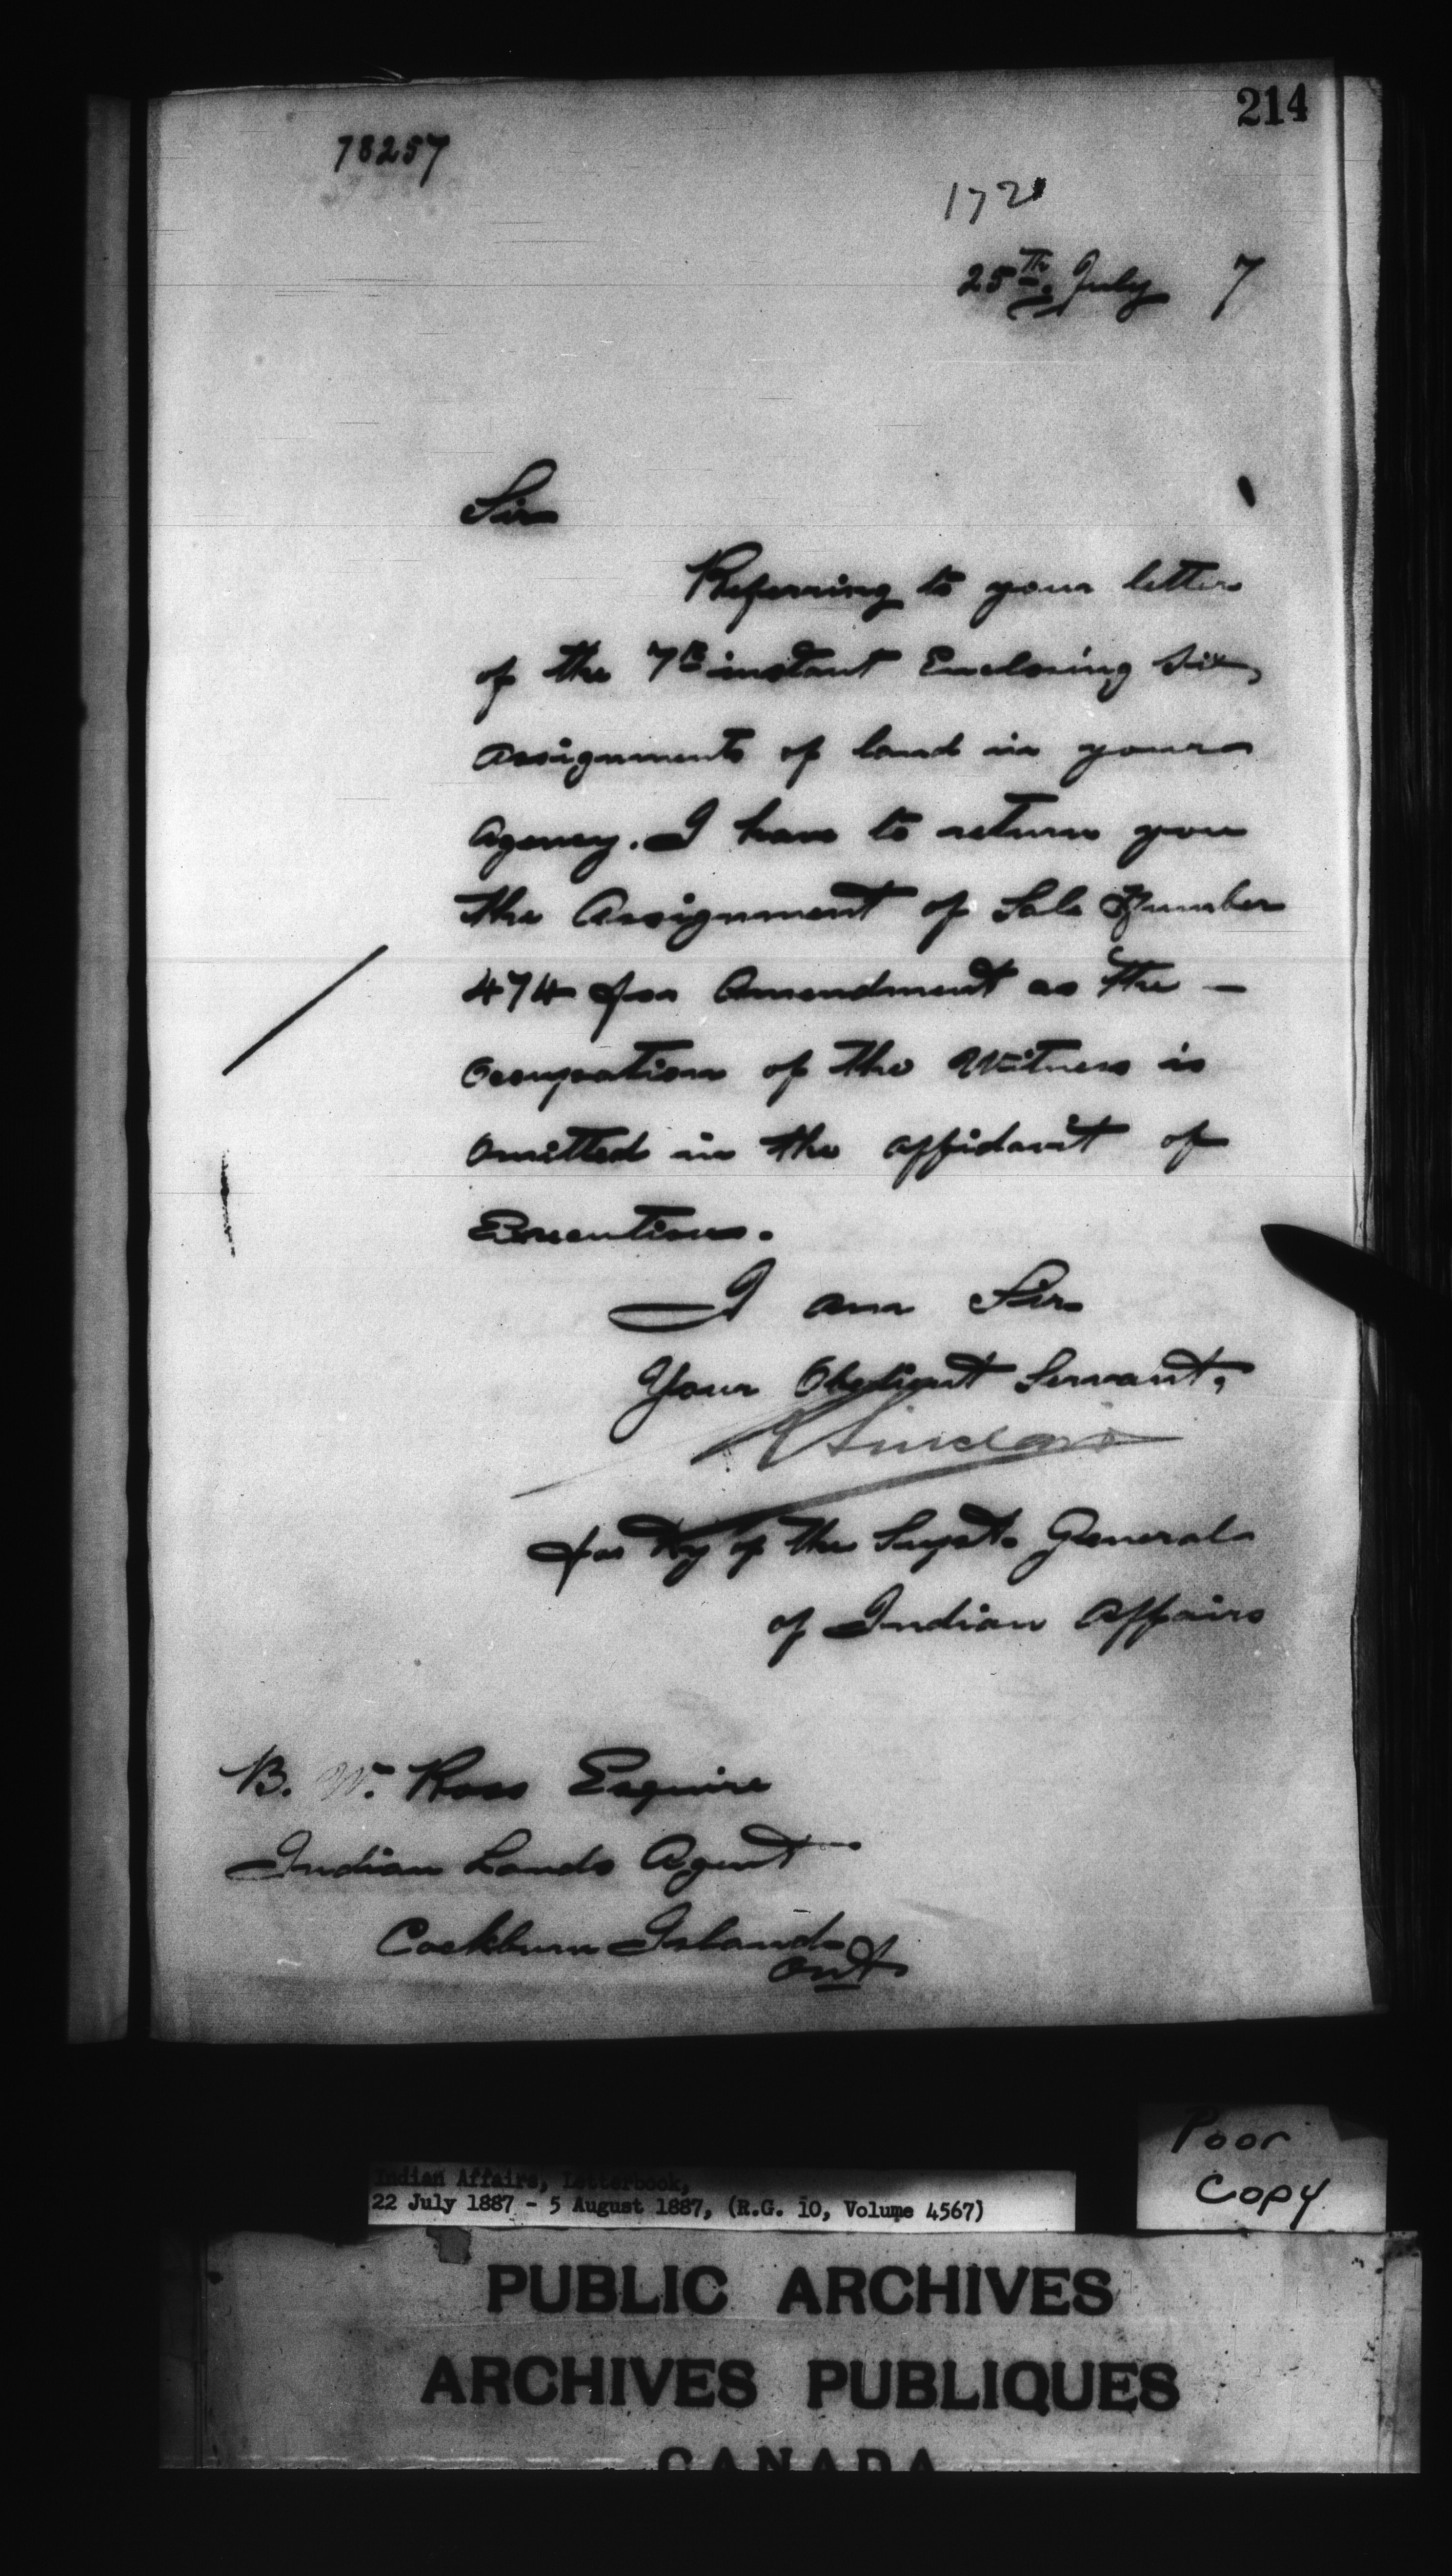 214
78257
172
25th. July 7
Sir
Referring to your letter
of the 7th instant Enclosing six
assignments of land in your
Agency. I have to return you
the Assignment of Sale Number
474 for Amendment as the —
Occupation of the Witness is
Omitted in the affidavit of
Execution.
I am Sir
Your Obedient Servant,
Sinclair
for Dy of the Supt. General
of Indian Affairs
B. W. Ross Esquire
Indian Lands Agent
Cockburn Island
Ont
Poor
Copy
Indian Affairs, Letterbook,
22 July 1887 - 5 August 1887, (R.G. 10, Volume 4567)
PUBLIC ARCHIVES
ARCHIVES PUBLIQUES
CANADA